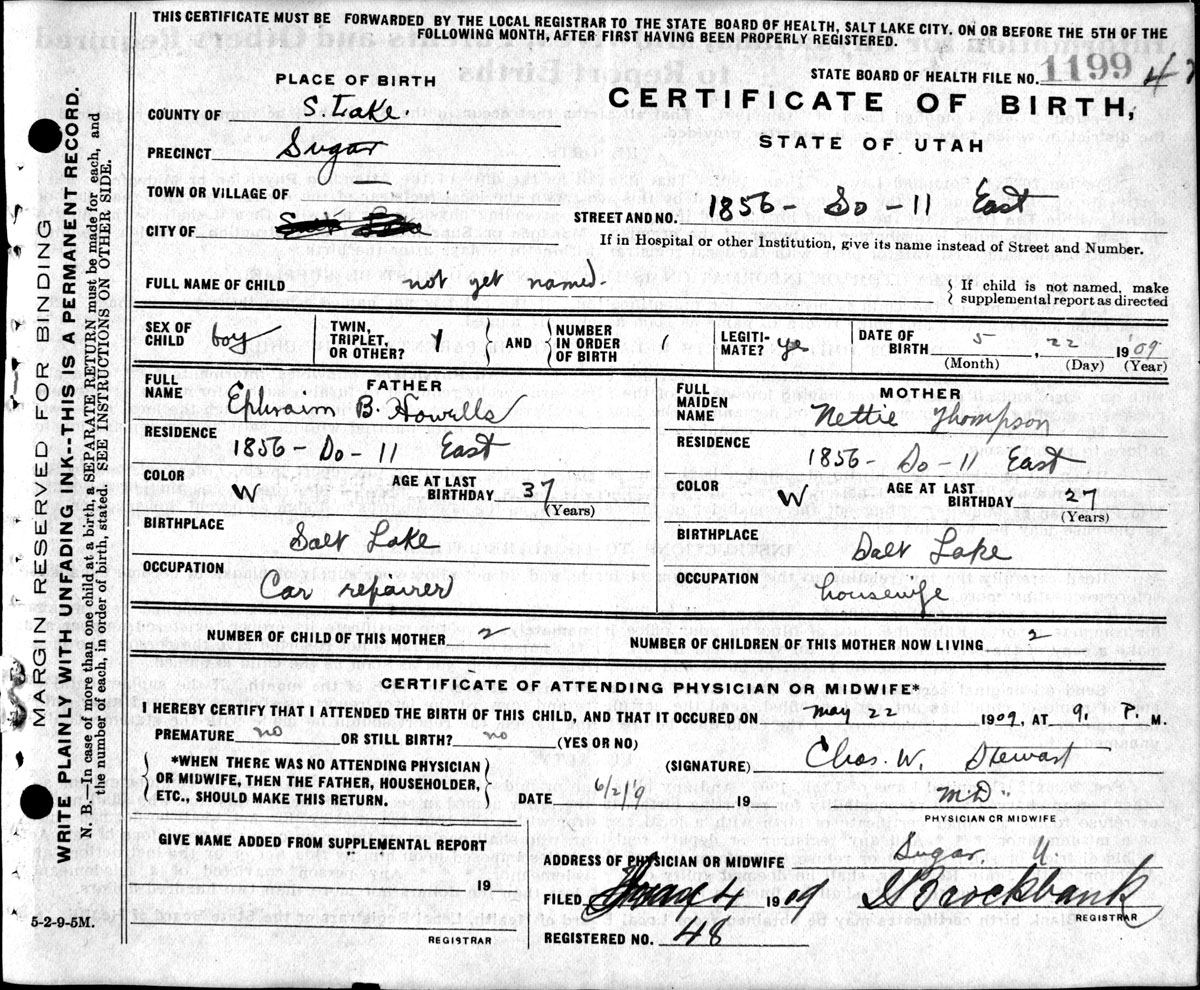 THIS CERTIFICATE MUST BE FORWARDED BY THE LOCAL REGISTRAR TO THE STATE BOARD OF HEALTH, SALT LAKE CITY, ON OR BEFORE THE 5TH OF THE
FOLLOWING MONTH, AFTER FIRST HAVING BEEN PROPERLY REGISTERED.
STATE BOARD OF HEALTH FILE NO. 1199
PLACE OF BIRTH
CERTIFICATE OF BIRTH,
STATE OF UTAH
COUNTY OF S. Lake.
PRECINCT Sugar
TOWN OR VILLAGE OF
CITY OF
STREET AND NO. 1856 - So - 11 East
If in Hospital or other Institution, give its name instead of Street and Number.
FULL NAME OF CHILD not yet named.
{ If child is not named, make
supplemental report as directed
SEX OF CHILD boy
TWIN, TRIPLET, OR OTHER?
} AND {
NUMBER IN ORDER OF BIRTH 1
LEGITI- MATE? ye
DATE OF BIRTH 5, 22 1909
(Month) (Day) (Year)
FATHER
FULL NAME Ephraim B. Howells
RESIDENCE 1856 - So - 11 East
COLOR W
AGE AT LAST BIRTHDAY 37
(Years)
BIRTHPLACE Salt Lake
OCCUPATION Car repairer
MOTHER
FULL MAIDEN NAME Nettie Thompson
RESIDENCE 1856 - So - 11 East
COLOR W
AGE AT LAST BIRTHDAY 27
(Years)
BIRTHPLACE Salt Lake
OCCUPATION housewife
NUMBER OF CHILD OF THIS MOTHER 2
NUMBER OF CHILDREN OF THIS MOTHER NOW LIVING 2
CERTIFICATE OF ATTENDING PHYSICIAN OR MIDWIFE*
I HEREBY CERTIFY THAT I ATTENDED THE BIRTH OF THIS CHILD, AND THAT IT OCCURED ON May 22 1909, AT 9. P. M.
PREMATURE no OR STILL BIRTH? no (YES OR NO)
*WHEN THERE WAS NO ATTENDING PHYSICIAN
OR MIDWIFE, THEN THE FATHER, HOUSEHOLDER,
ETC., SHOULD MAKE THIS RETURN.
(SIGNATURE) Chas. W. Stewart
DATE 19
M.D.
PHYSICIAN OR MIDWIFE
GIVE NAME ADDED FROM SUPPLEMENTAL REPORT
19
REGISTRAR
ADDRESS OF PHYSICIAN OR MIDWIFE Sugar. U
FILED 4 1909 Brockbank
REGISTRAR
REGISTERED NO. 48
5-2-9-5M.
MARGIN RESERVED FOR BINDING
WRITE PLAINLY WITH UNFADING INK--THIS IS A PERMANENT RECORD.
N. B.—In case of more than one child at a birth, a SEPARATE RETURN must be made for each, and
the number each, in order of birth, stated. SEE INSTRUCTIONS ON OTHER SIDE.